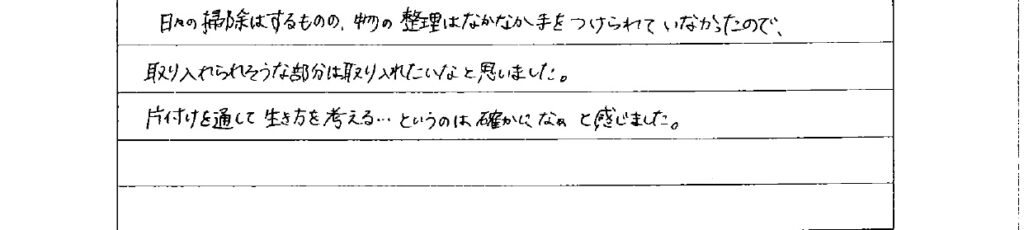 日々の掃除はするものの、物の整理はなかなか手をつけられていなかったので、
取り入れられそうな部分は取り入れたいなと思いました。
片付けを通して生き方を考える…というのは確かになぁと感じました。